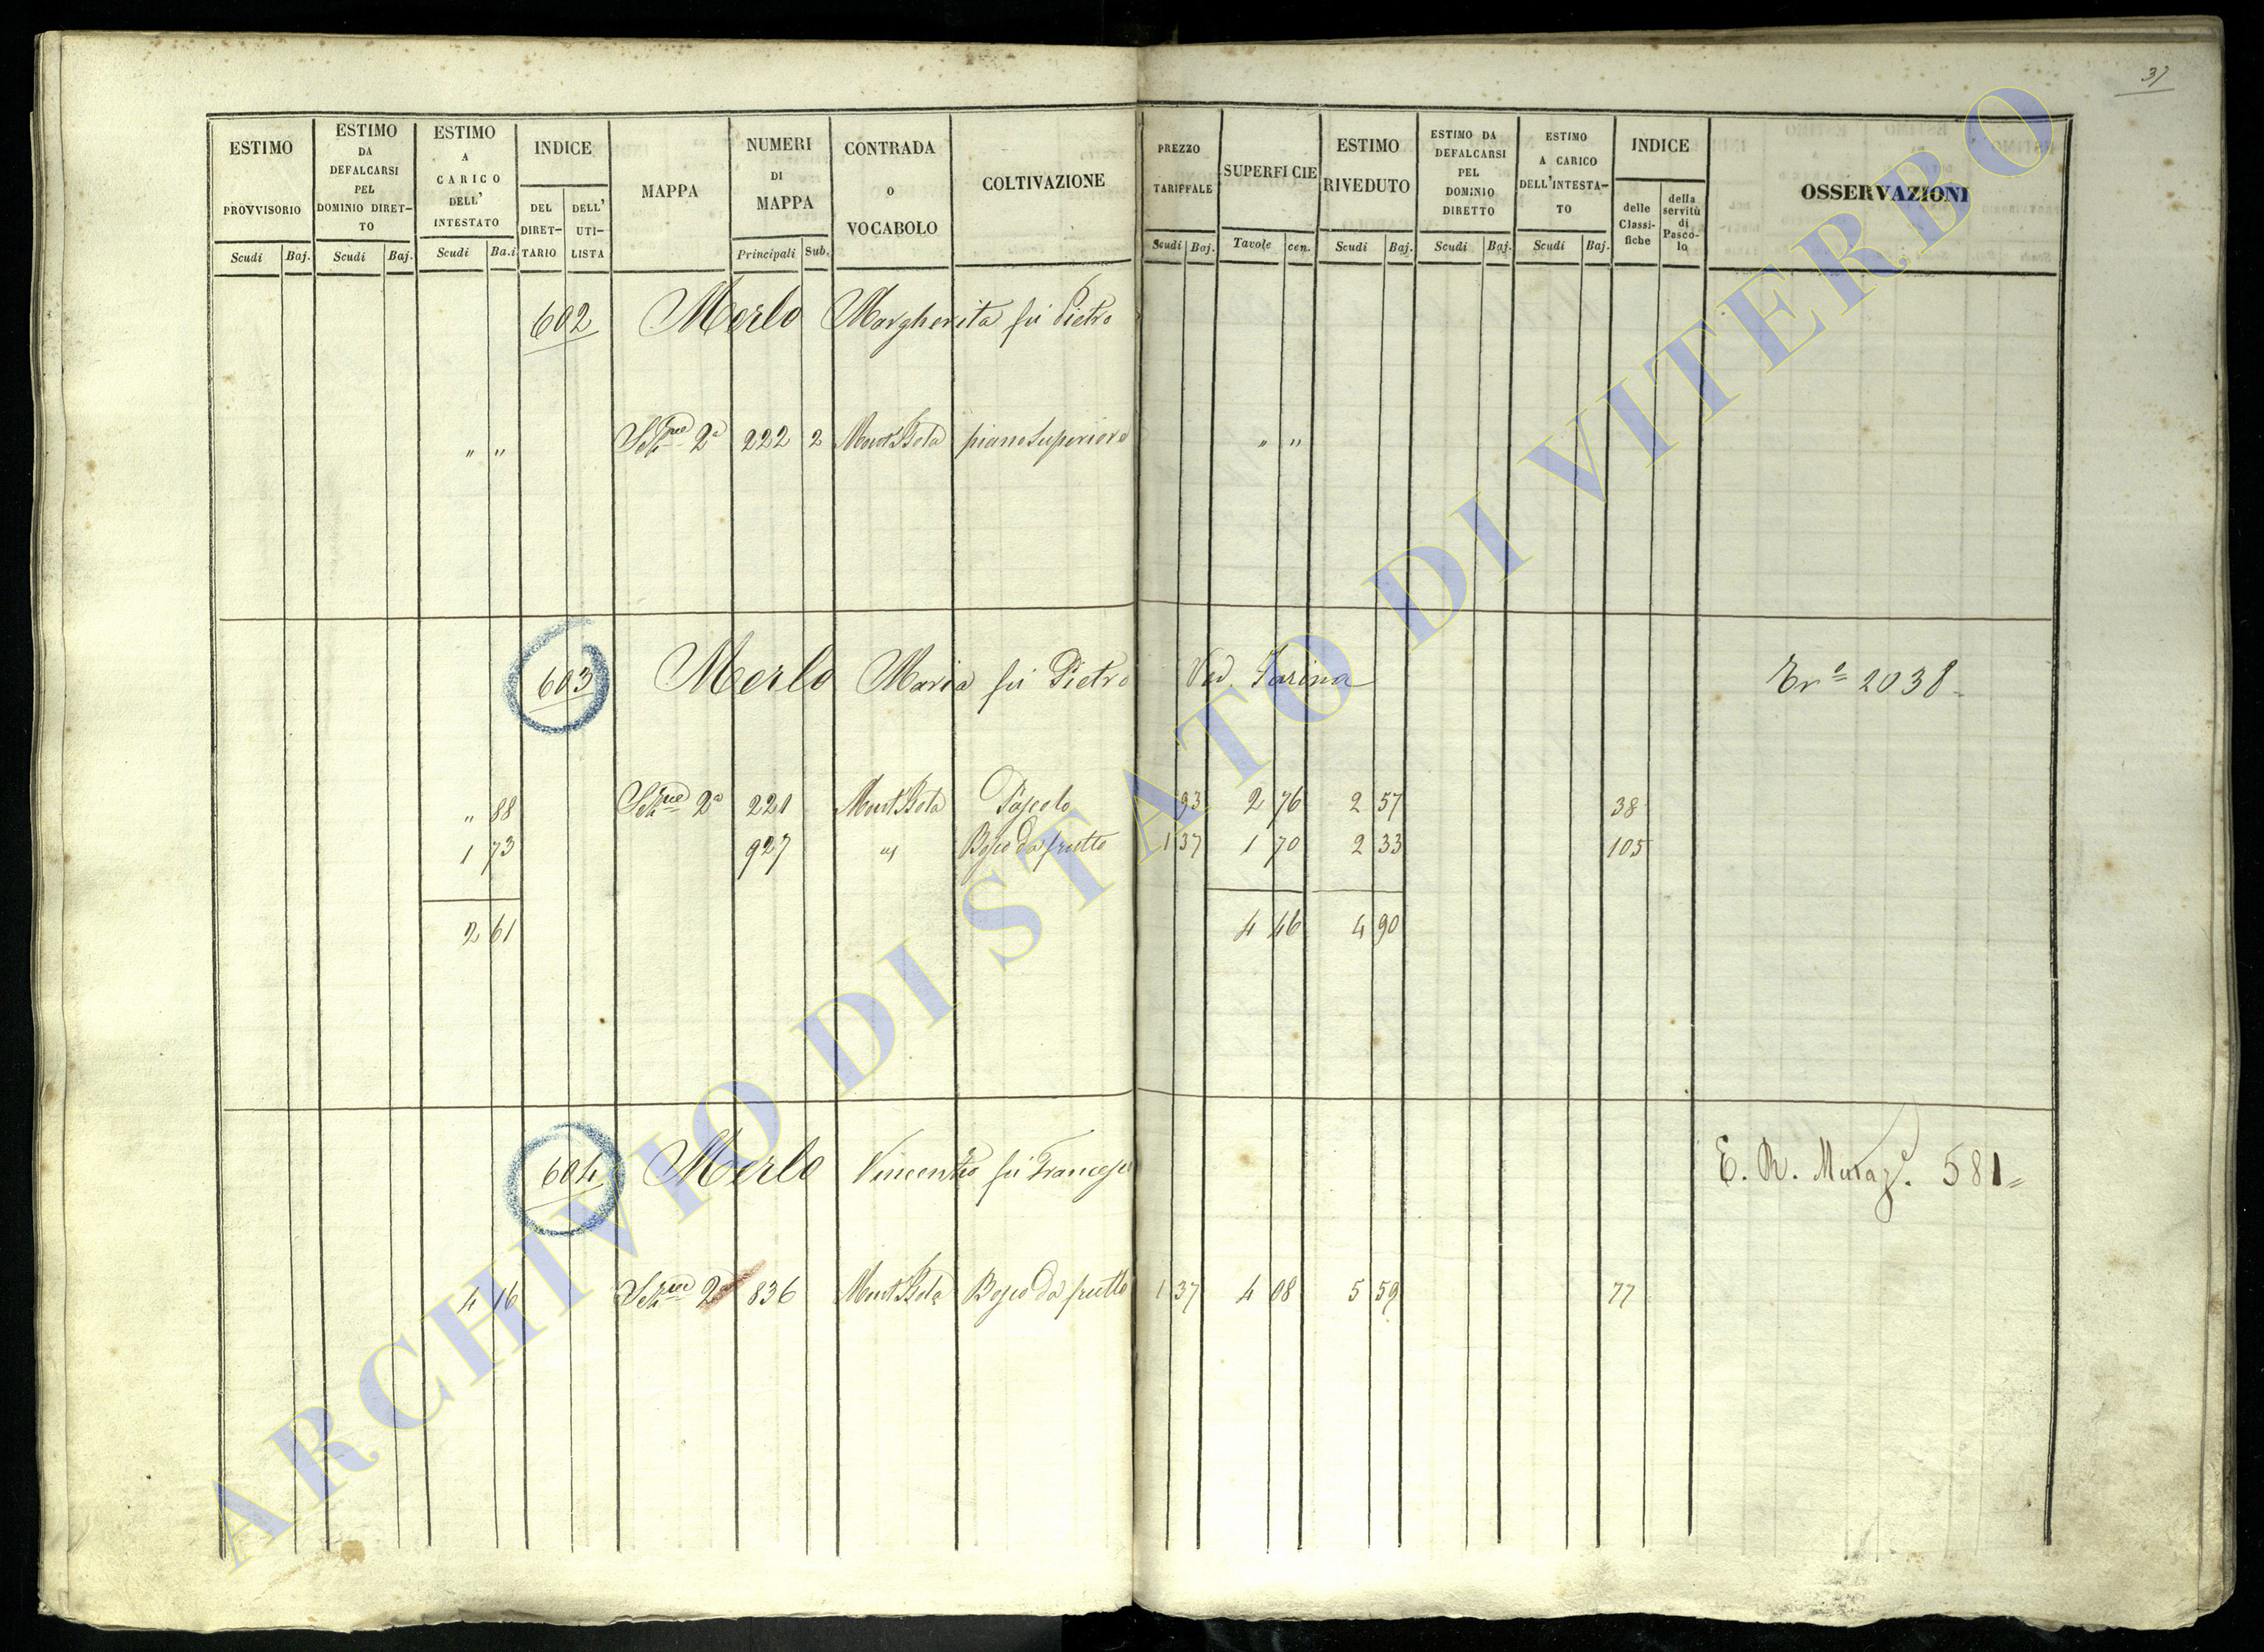 37
ESTIMO PROVVISORIO
ESTIMO DA DEFALCARSI PEL DOMINIO DIRET-TO
ESTIMO A CARICO DELL' INTESTATO
INDICE
MAPPA
NUMERI DI MAPPA
CONTRADA O VOCABOLO
COLTIVAZIONE
PREZZO TARIFFALE
SUPERFICIE
ESTIMO RIVEDUTO
ESTIMO DA DEFALCARSI PEL DOMINIO DIRETTO
ESTIMO A CARICO DELL'INTESTA-TO
INDICE
OSSERVAZIONI
DEL DIRET-TARIO
DELL' UTI-LISTA
delle Classi-fiche
della servitù di Pasco-lo
Scudi Baj. Scudi Baj. Scudi Ba.i Principali Sub. Scudi Baj. Tavole cen. Scudi Baj. Scudi Baj. Scudi Baj.
602 Merlo Margherita fu Pietro
" " 2ª 222 2 piano Superiore " "
603 Merlo Maria fu Pietro Ved. Farina 2038
" 88 2ª 221 Pascolo 93 2 76 2 57 38
1 73 927 " Bosco da frutto 1 37 1 70 2 33 105
2 61 4 46 4 90
604 Merlo Vincenzo fu Francesco E. R. 581
4 16 2ª 836 Bosco da frutto 1 37 4 08 5 59 77
ARCHIVIO DI STATO DI VITERBO